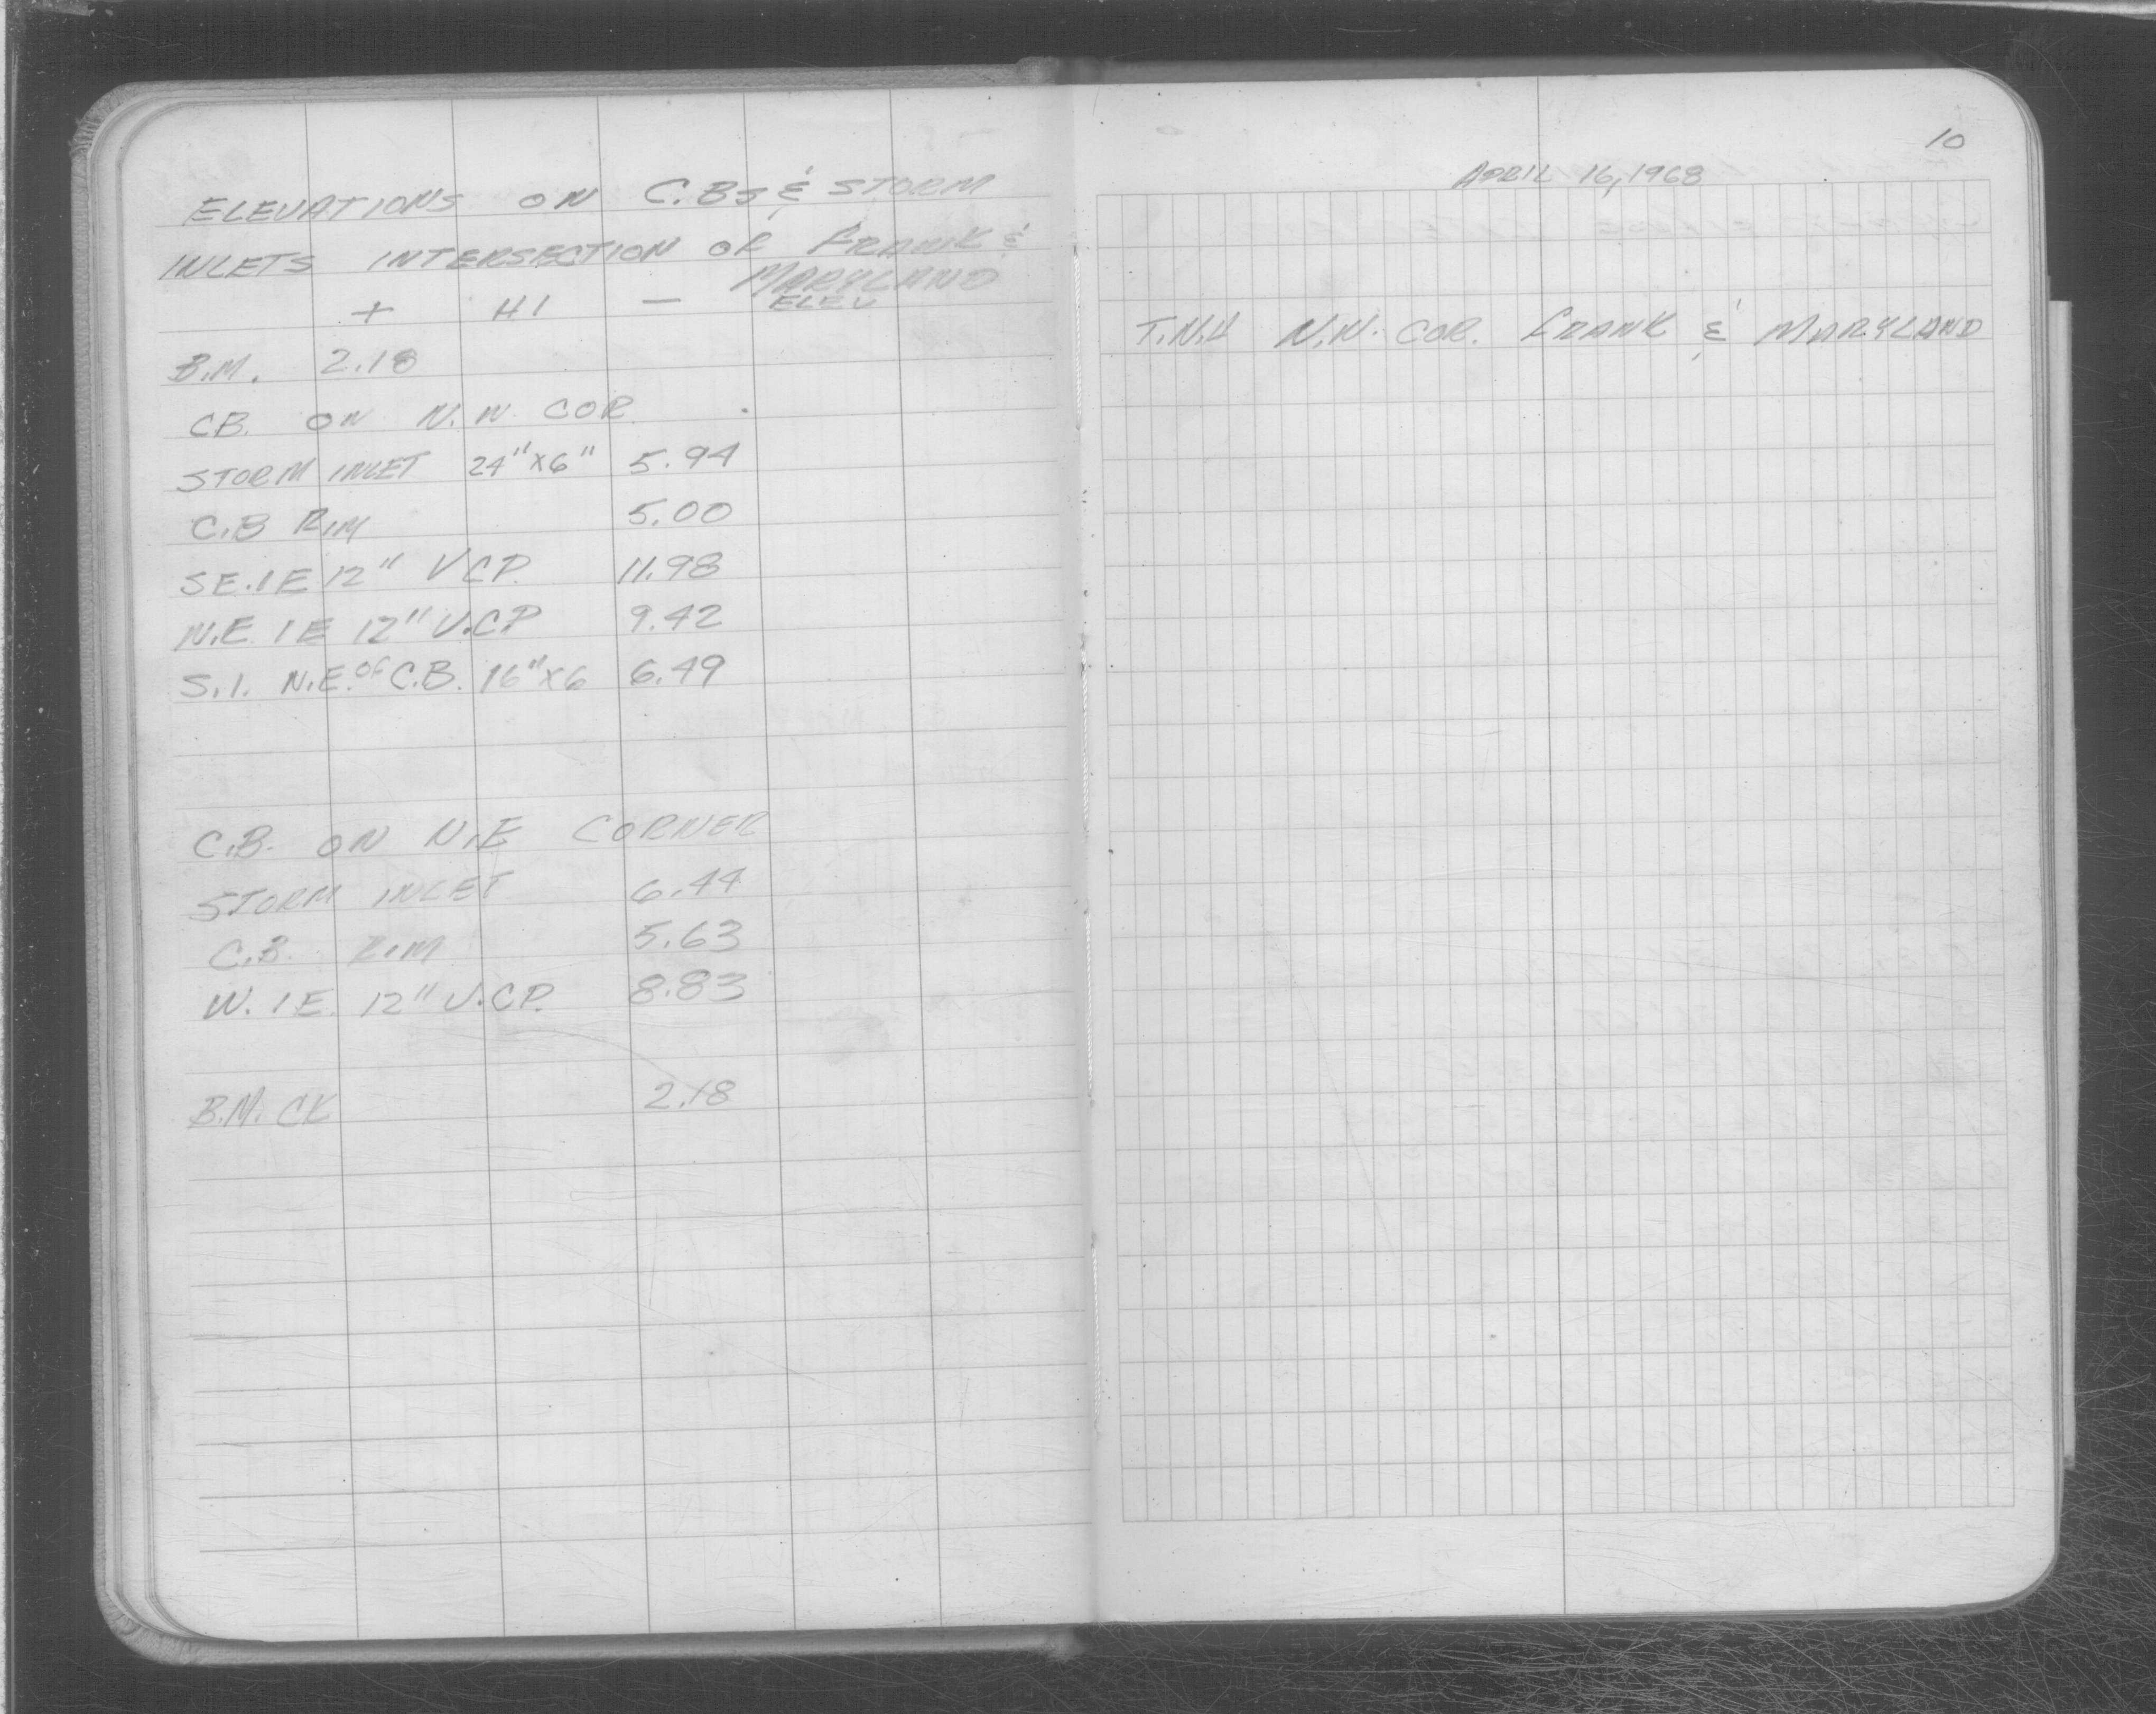 ELEVATIONS ON C.Bs & STORM
INLETS INTERSECTION OF FRANK &
MARYLAND
+ HI — ELEV
B.M. 2.18
CB. ON N.W COR.
STORM INLET 24"X6" 5.94
C.B RIM 5.00
SE. IE 12" VCP. 11.98
N.E. IE 12" V.C.P 9.42
S.I. N.E. OF C.B. 16"X6 6.49
C.B. ON N.E CORNER
STORM INLET 6.44
C.B. RIM 5.63
W. IE. 12" V.CP. 8.83
B.M. CK 2.18
10
APRIL 16, 1968
T.N.H N.W. COR. FRANK & MARYLAND